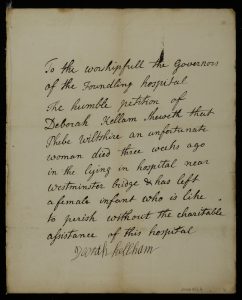 To the worshipfull the Governors
of the Foundling hospital
The humble petition of
Deborah Kellam Sheweth that
Phebe Wiltshire an unfortunate
woman died three weeks ago
in the lying in hospital near
westminster bridge & has left
a female infant who is like
to perish without the charitable
assistance of this hospital